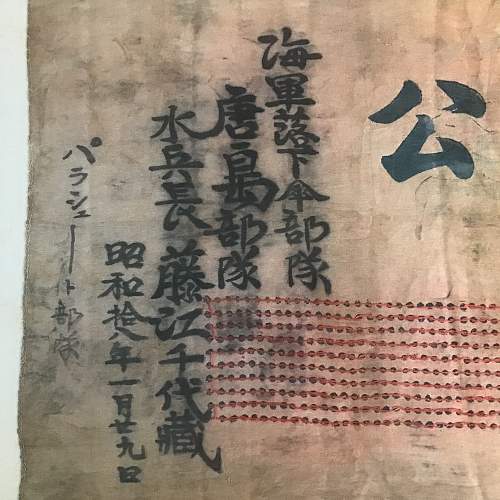 公
海軍落下傘部隊
唐島部隊
水兵長 藤江千代藏
昭和拾八年一月廿九日
パラシュート部隊